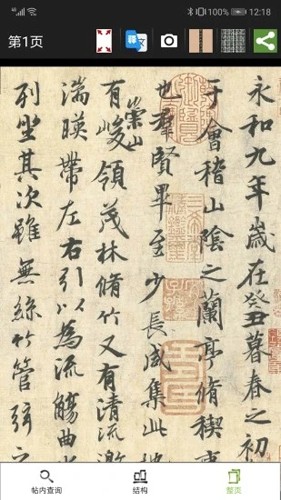 4G 100% 12:18
第1页
永和九年歲在癸丑暮春之初
于會稽山陰之蘭亭脩稧事
也羣賢畢至少長咸集此地
有崇山峻領茂林脩竹又有清流激
湍暎帶左右引以為流觴曲水
列坐其次雖無絲竹管弦之
帖内查询
结构
整页